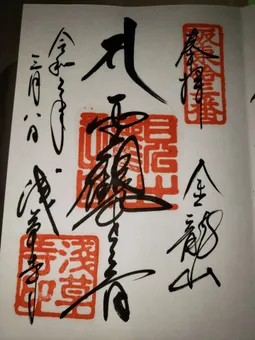 坂東拾三番
奉拝
金龍山
聖観世音
浅草寺
淺草寺印
令和二年
三月八日